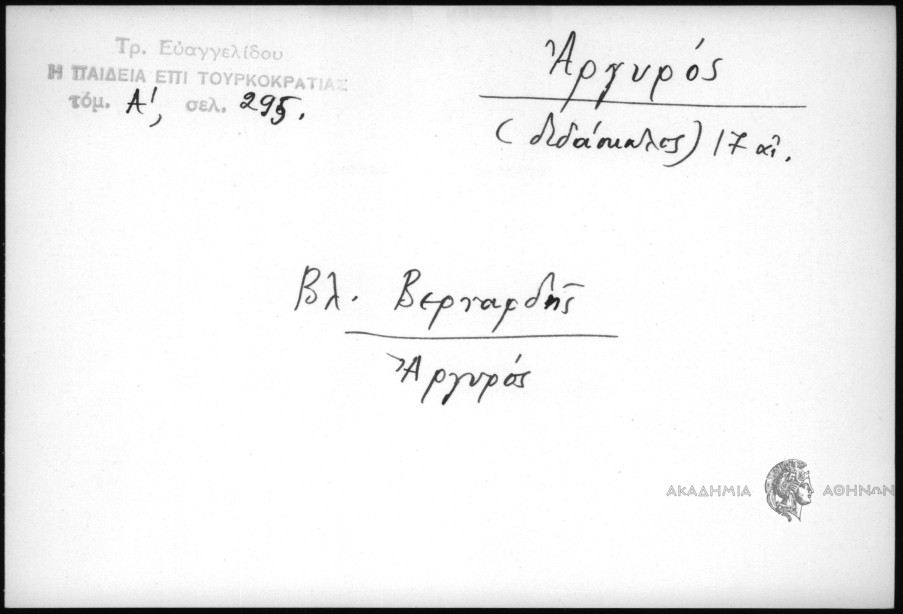 Τρ. Εὐαγγελίδου
Η ΠΑΙΔΕΙΑ ΕΠΙ ΤΟΥΡΚΟΚΡΑΤΙΑΣ
τόμ. Α', σελ. 295.
Ἀργυρός
(διδάσκαλος) 17 αἰ.
Βλ. Βερναρδῆς
Ἀργυρός
ΑΚΑΔΗΜΙΑ ΑΘΗΝΩΝ